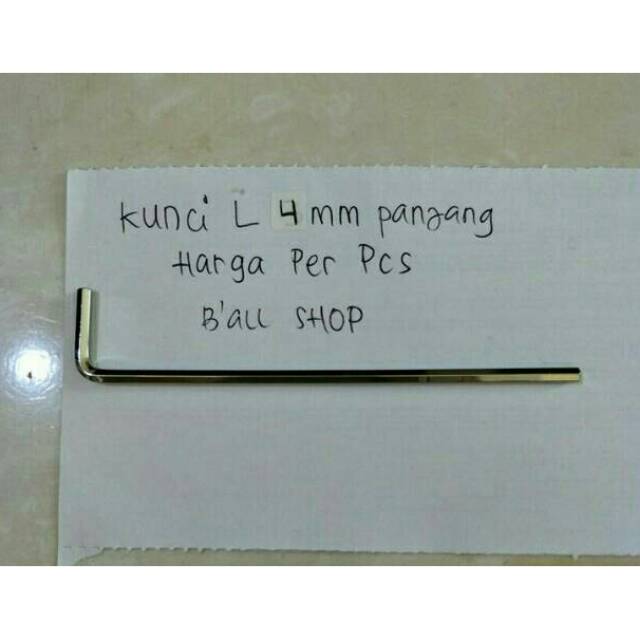 Kunci L 4 mm panjang
Harga Per Pcs
B'all SHOP